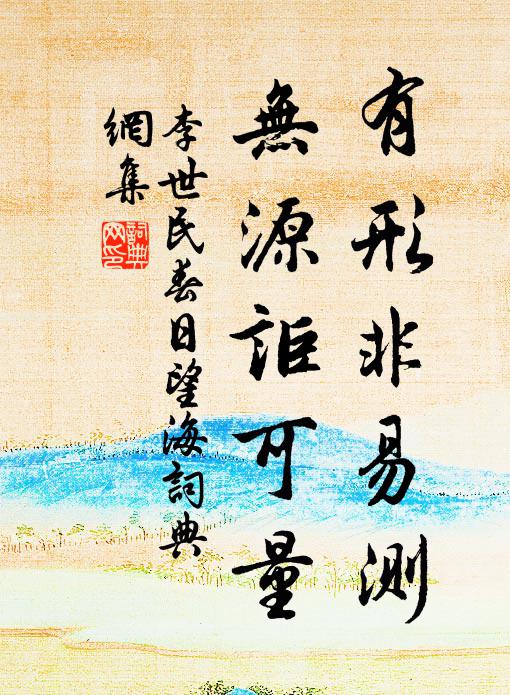 有形非易測
無源詎可量
李世民春日望海詞典
網集
詞典
网印